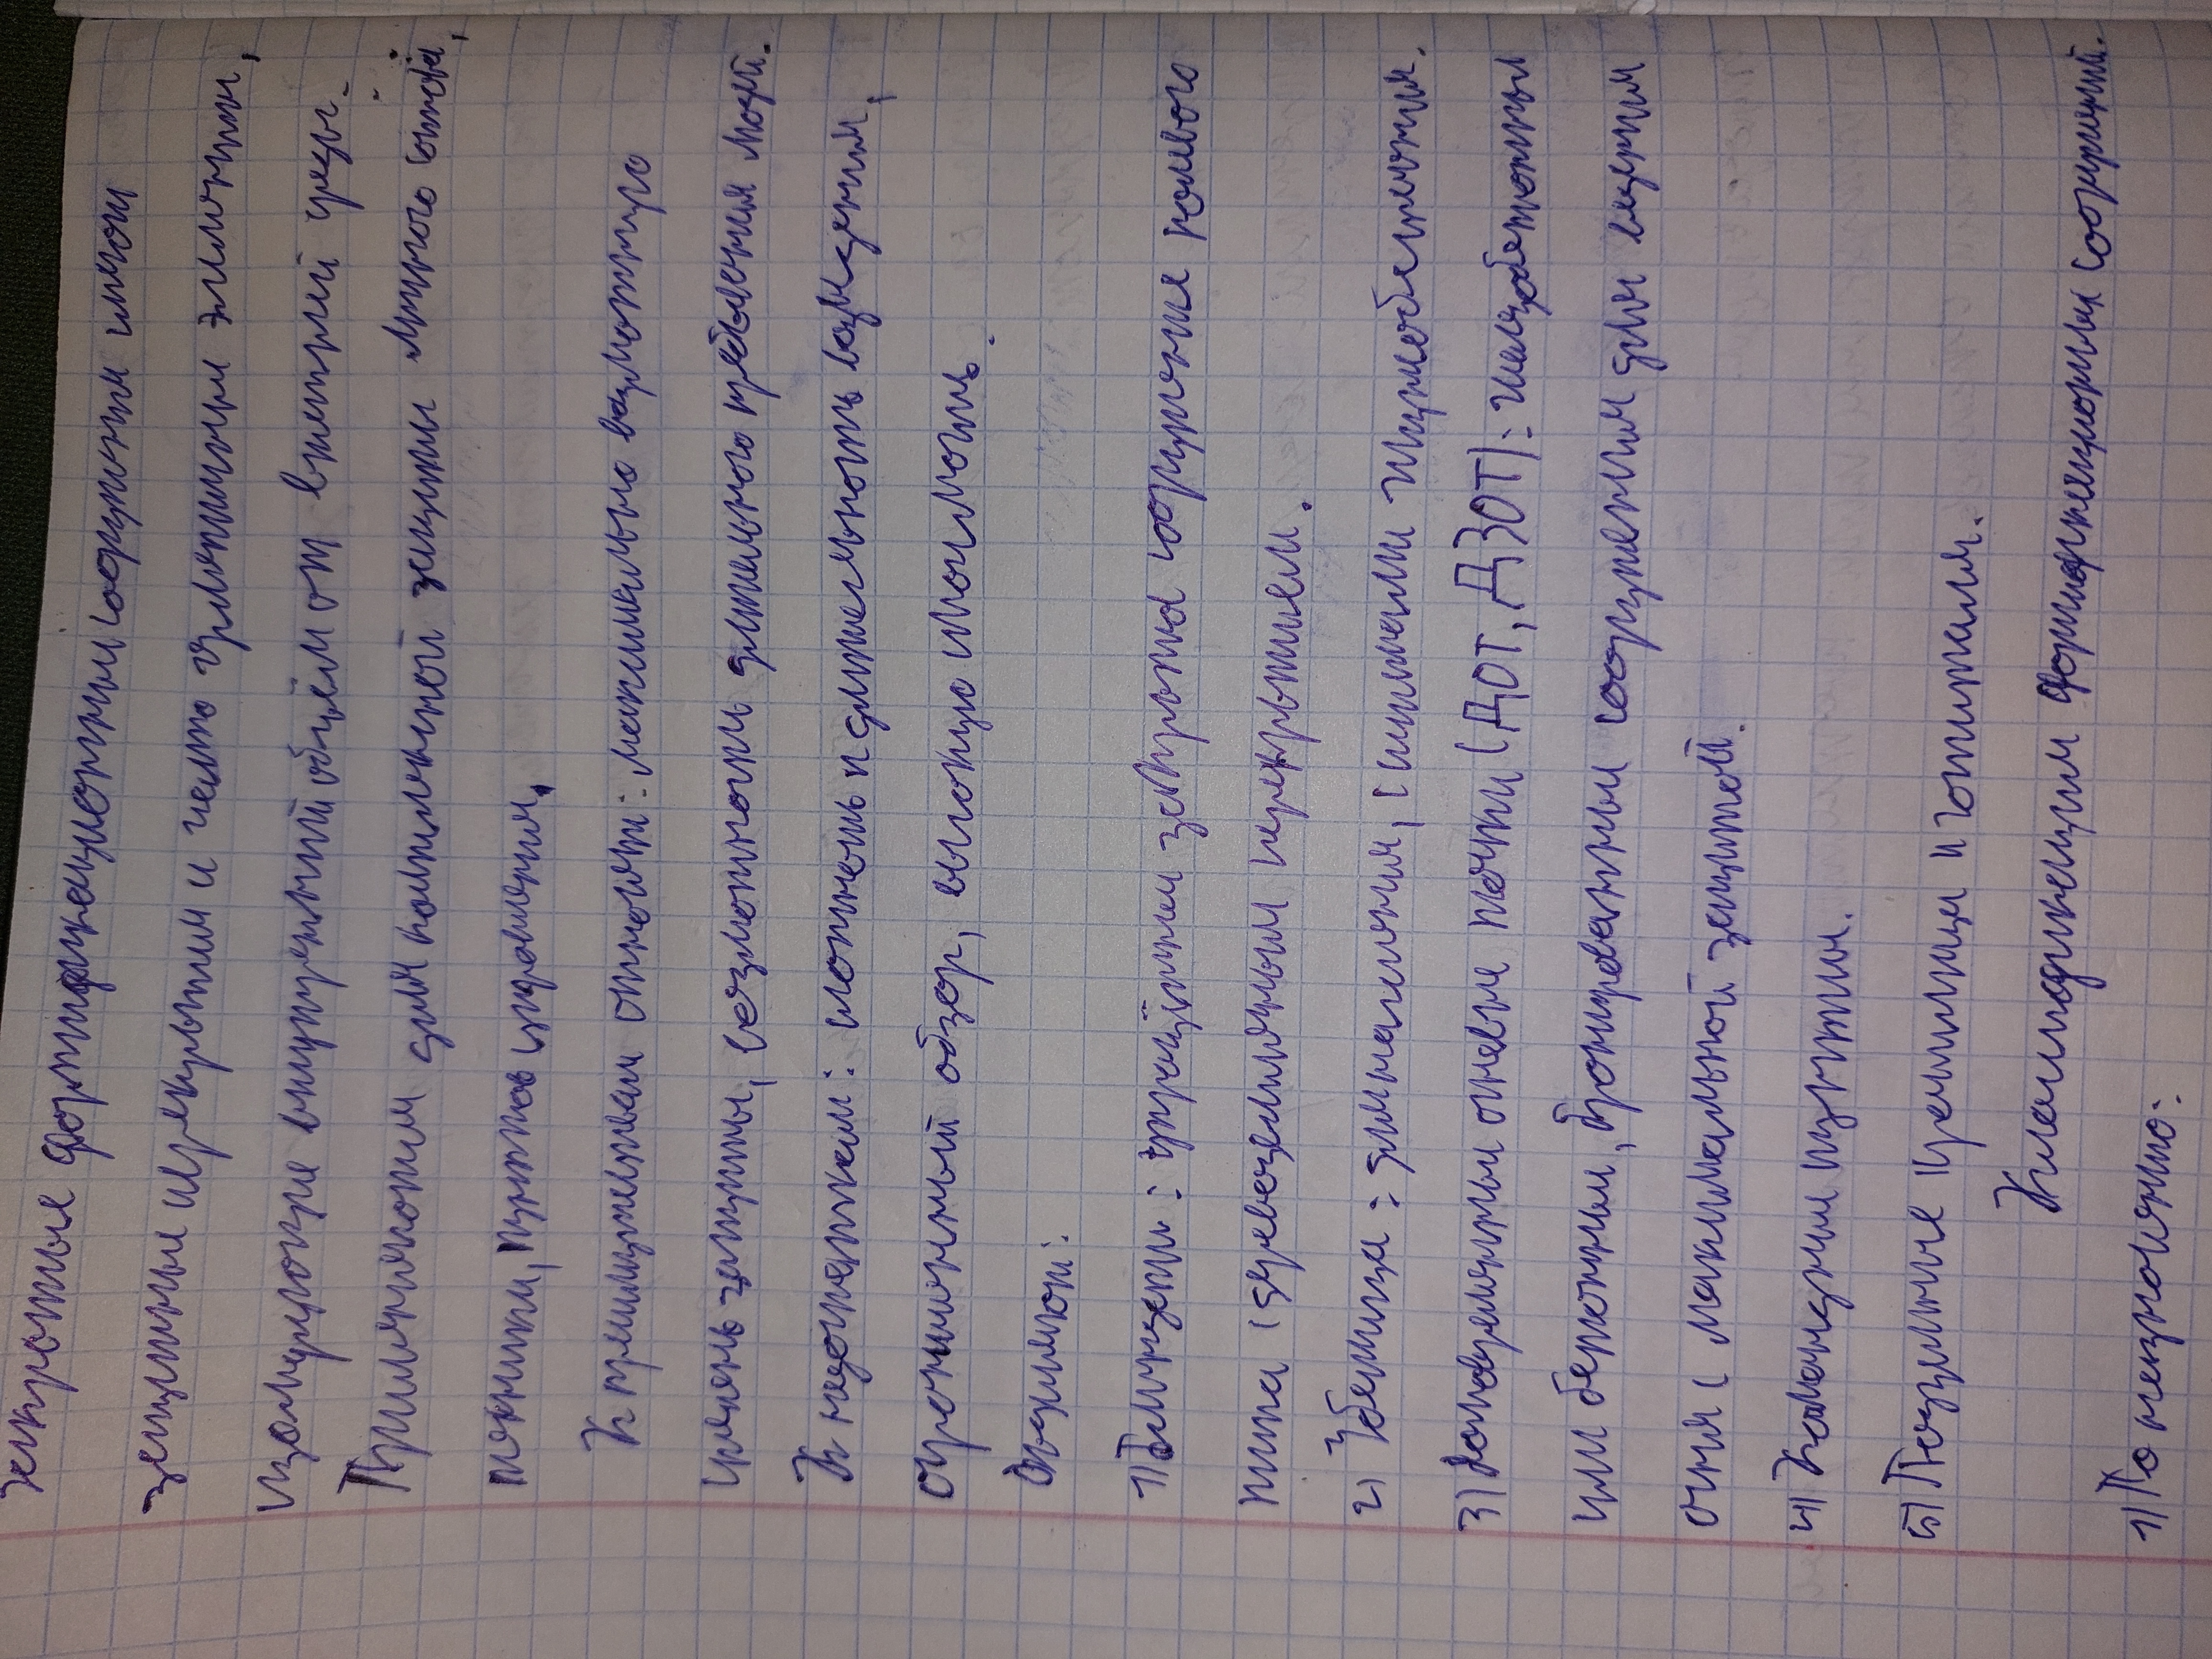 Закрытые фортификационные сооружения имеют
защитные перекрытия и часто герметичные элементы,
изолирующие внутренний объём от внешней среды.
Применяются для комплексной защиты личного состава,
техники, пунктов управления.
К преимуществам относят: максимально возможную
степень защиты, возможность длительного пребывания людей.
К недостаткам: сложность и длительность возведения,
ограниченный обзор, высокую стоимость.
Выделяют:
1) Блиндажи: упрощённые закрытые сооружения полевого
типа (деревоземляными перекрытием.
2) Убежища: с системами жизнеобеспечения.
3) Долговременные огневые точки (ДОТ, ДЗОТ): железобетонные
или бетонные, бронированные сооружения для ведения
огня с максимальной защитой.
4) Командные пункты.
5) Подземные хранилища и госпитали.
Классификация фортификационных сооружений.
1) По назначению: